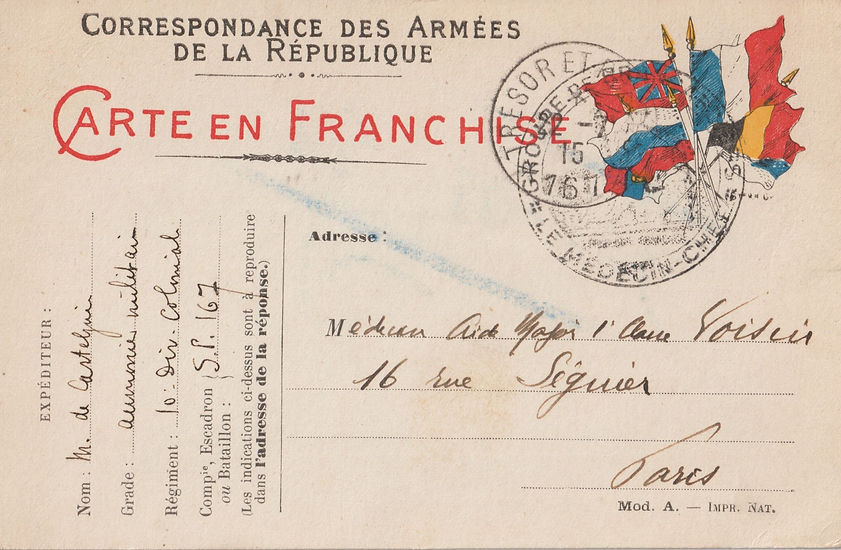 CORRESPONDANCE DES ARMÉES
DE LA RÉPUBLIQUE
CARTE EN FRANCHISE
TRESOR ET
15
167
GROUPE DE
LE MEDECIN-CHEF
EXPÉDITEUR :
Nom : M. de Castelnau
Grade : aumonier militaire
Régiment : 10 Div. Coloniale
Compie, Escadron
ou Bataillon : S.P. 167
(Les indications ci-dessus sont à reproduire
dans l'adresse de la réponse.)
Adresse :
Médecin Aide Major 1e Classe Voisin
16 rue Séguier
Paris
Mod. A. — IMPR. NAT.